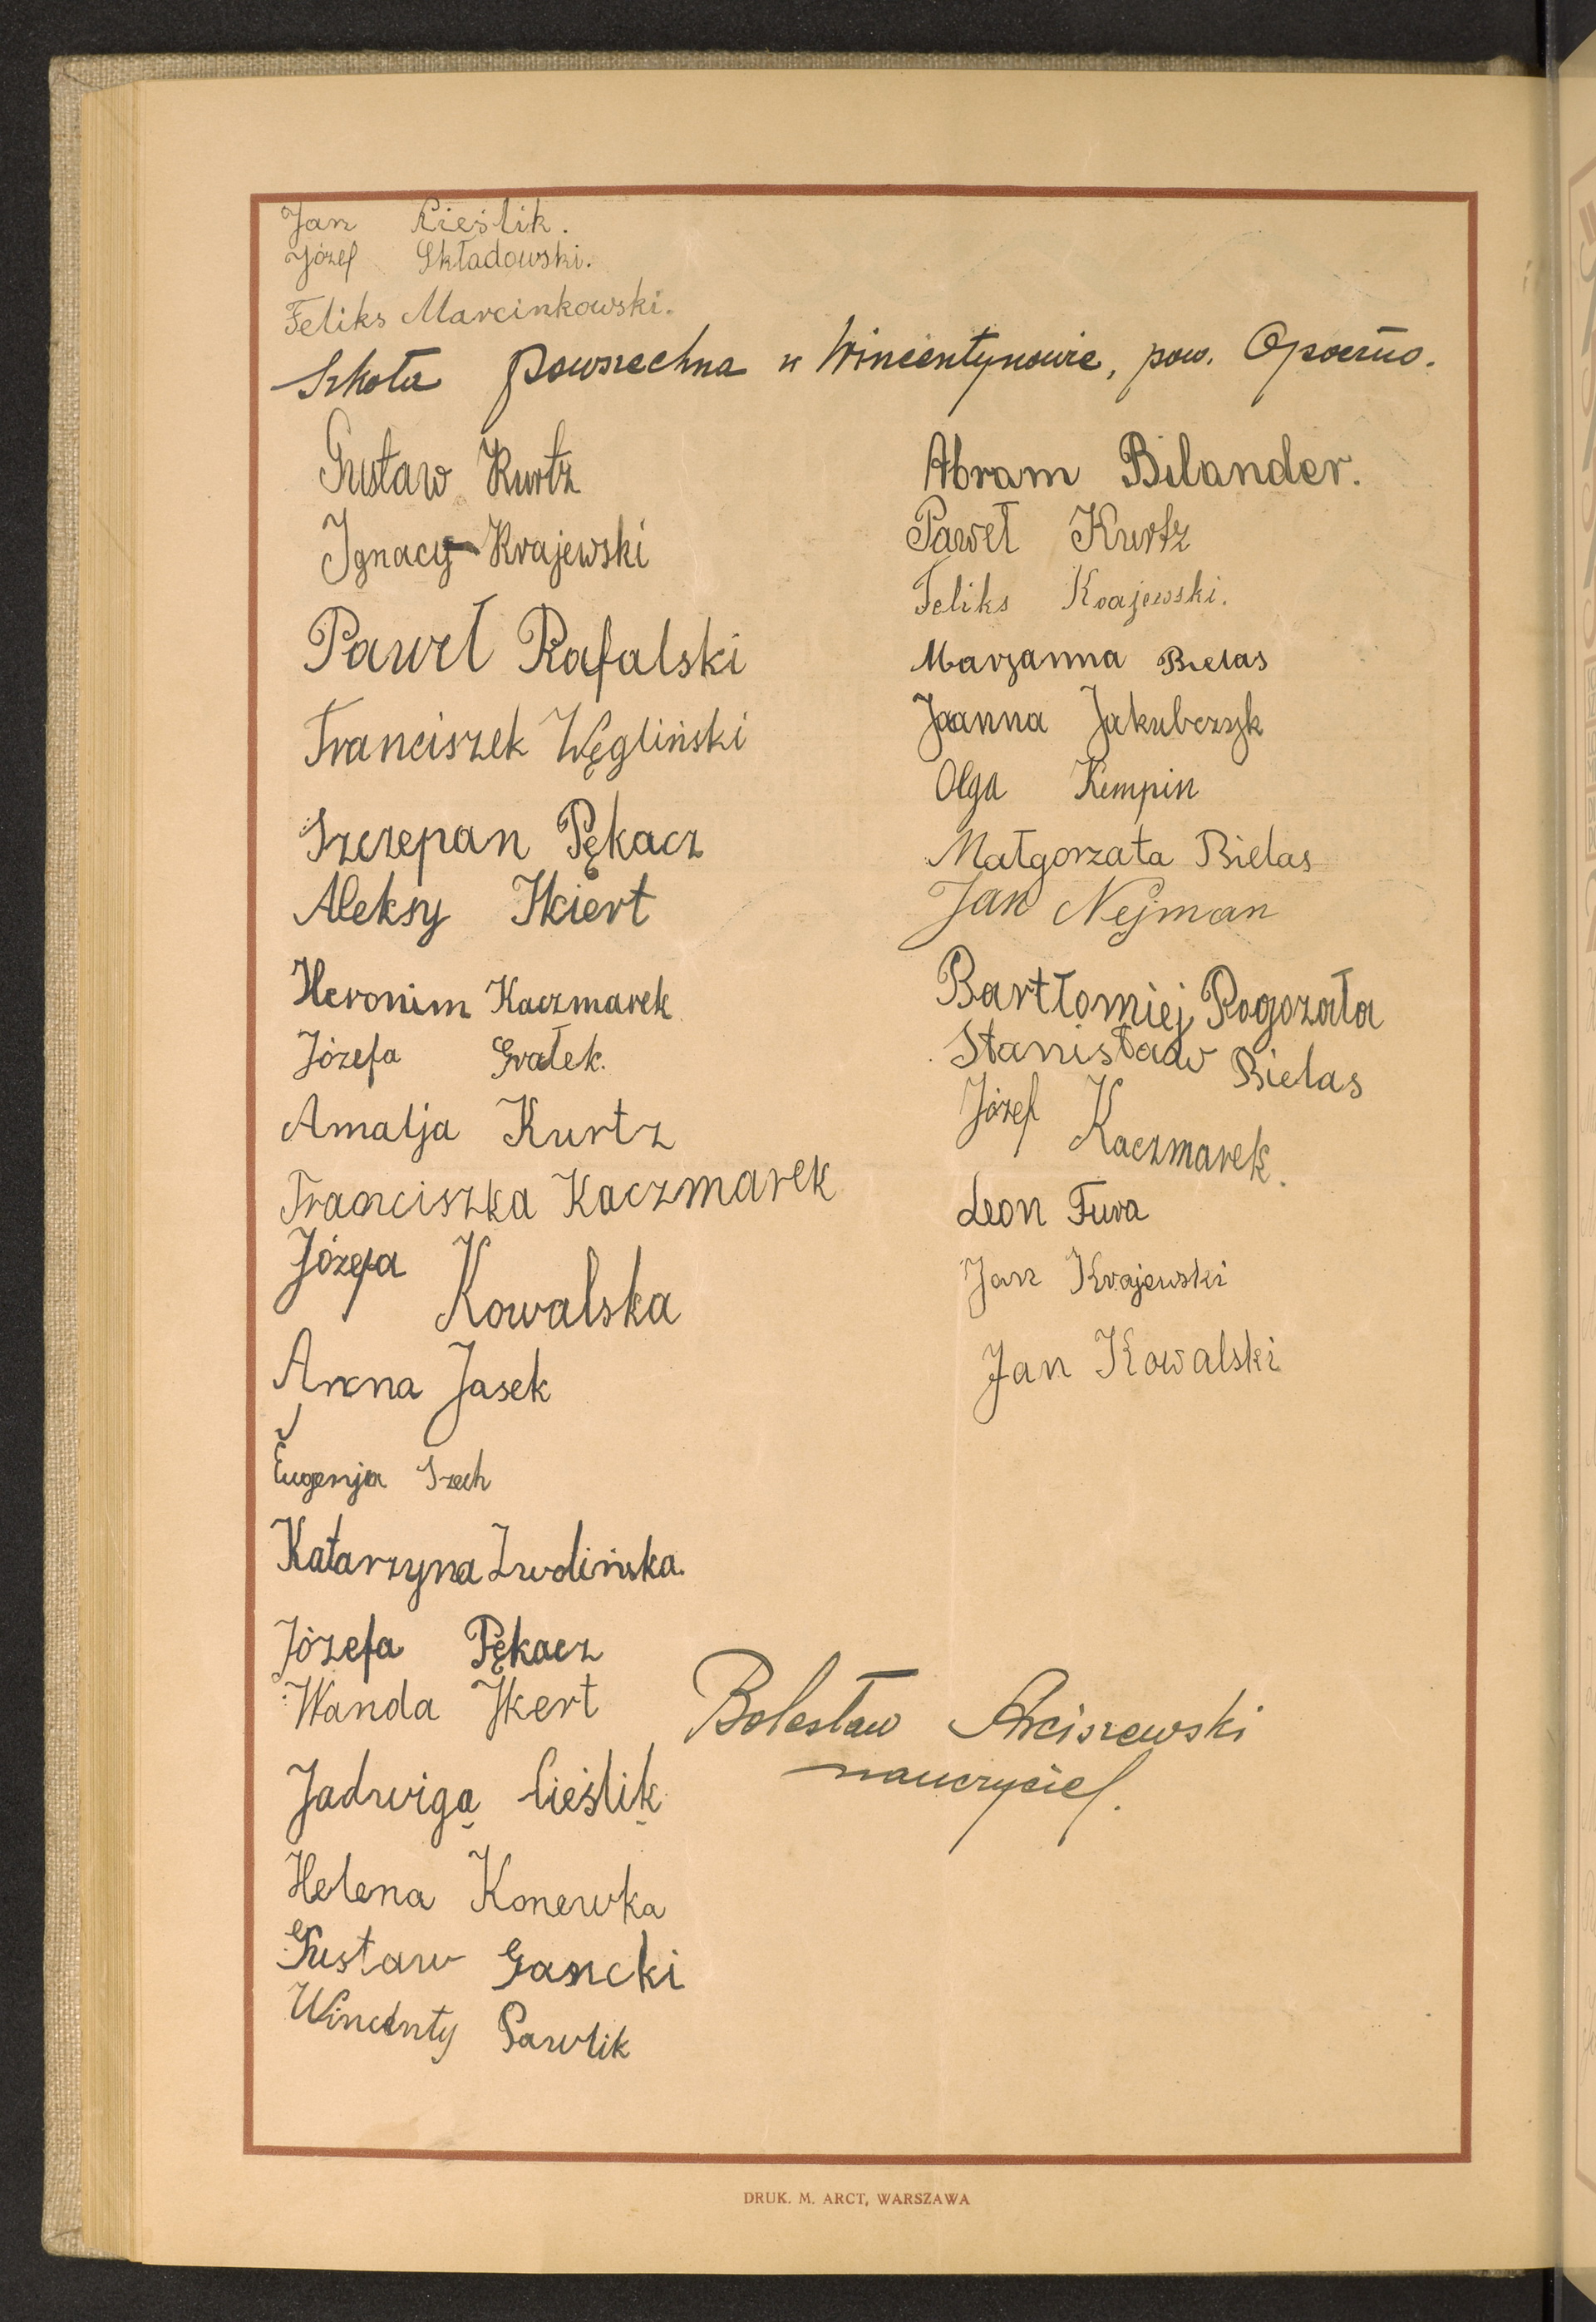 Jan Cieślik.
Józef Składowski.
Feliks Marcinkowski.
Szkoła powszechna w Wincentynowie, pow. Opoczno.
Gustaw Kurtz
Ignacy Krajewski
Paweł Rafalski
Franciszek Węgliński
Szczepan Pękacz
Aleksy Ikiert
Heronim Kaczmarek
Józefa Grałek.
Amalja Kurtz
Franciszka Kaczmarek
Józefa Kowalska
Anna Jasek
Eugenja Szech
Katarzyna Zwolińska.
Józefa Pękacz
Wanda Ikert
Jadwiga Cieślik
Helena Konewka
Gustaw Gancki
Wincenty Pawlik
Abram Bilander.
Paweł Kurtz
Feliks Krajewski.
Marzanna Bielas
Joanna Jakubczyk
Olga Kempin
Małgorzata Bielas
Jan Nejman
Bartłomiej Rogozała
Stanisław Bielas
Józef Kaczmarek.
Leon Fura
Jan Krajewski
Jan Kowalski
Bolesław Arciszewski
nauczyciel.
DRUK. M. ARCT, WARSZAWA